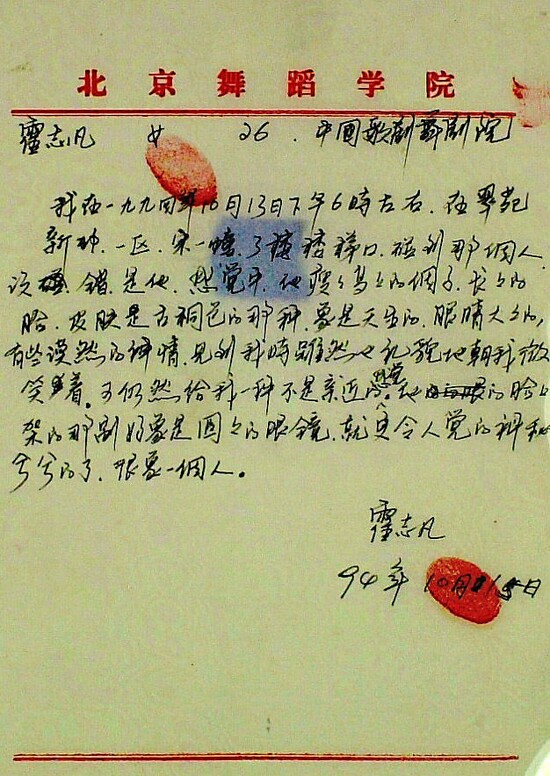 北京舞蹈学院
霍志凡 女 26. 中国歌剧舞剧院
我在一九九四年10月13日下午6時左右.在翠苑
新村.一区.宋一幢.3楼楼梯口.碰到那個人
没錯.是他.感觉中.他瘦々高々的個子.长々的
脸.皮肤是古桐色的那种.象是天生的.眼睛大々的,
有些漠然的神情.見到我時雖然也礼貌地朝我微
笑着.可仍然给我一种不是亲近的感觉.他的脸上
架的那副好象是圆々的眼镜.就更令人觉的神秘
兮兮的了.很象一個人。
霍志凡
94年10月15日